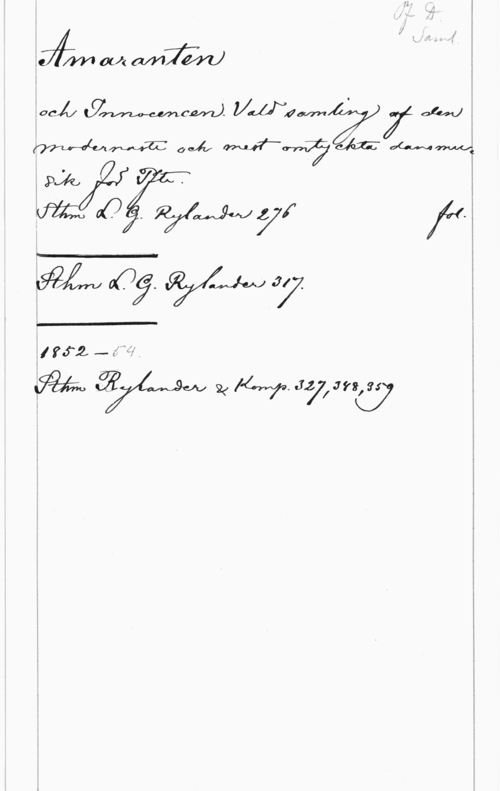 Pf. D.
Saml.
Amaranten
och Innocencen. Vald samling af den
modernaste och mest omtyckta dansmu-
sik för Pfte.
Sthm L. G. Rylander 276 fol.
Sthm L. G. Rylander 317.
1852 – 54.
Sthm Rylander & Komp. 327, 348, 359